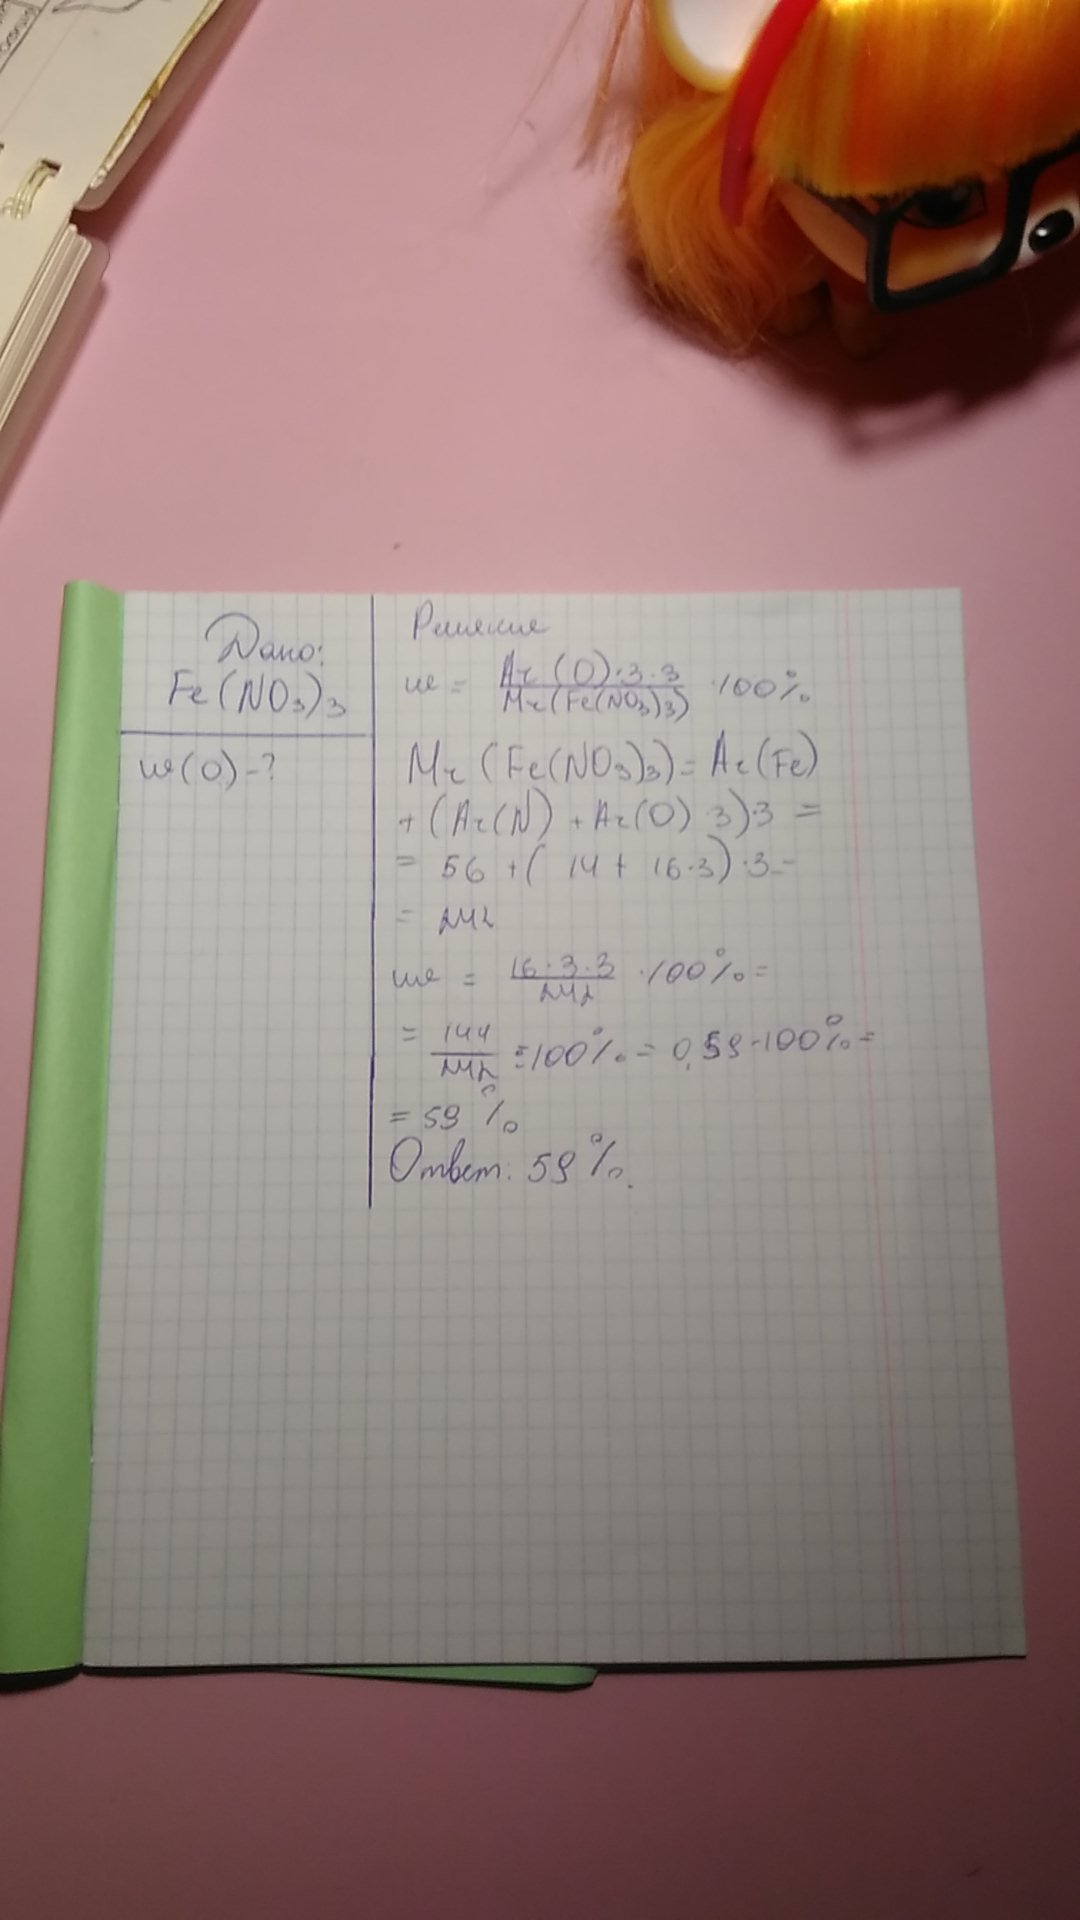 Дано:
Fe(NO₃)₃
w(O)-?
Решение
w = Ar(O)·3·3 / Mr(Fe(NO₃)₃) ·100%
Mr(Fe(NO₃)₃)= Ar(Fe)
+ (Ar(N) + Ar(O) 3)·3 =
= 56 + ( 14 + 16·3)·3 =
= 242
w = 16·3·3 / 242 ·100% =
= 144 / 242 ·100% = 0,59·100% =
= 59 %
Ответ: 59 %.